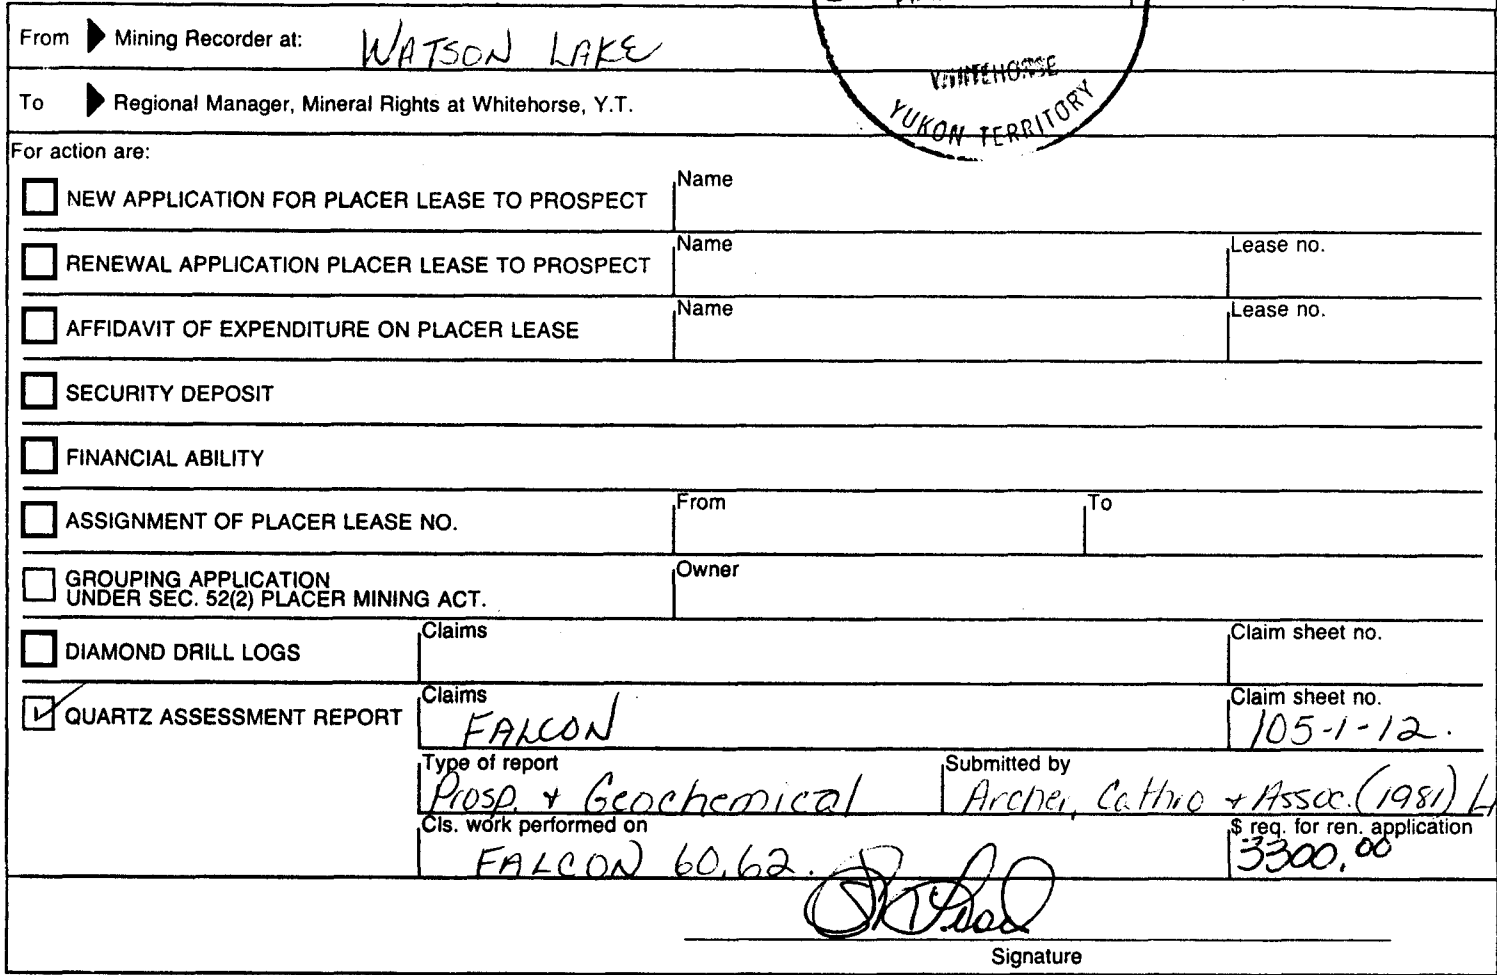 From Mining Recorder at: WATSON LAKE
WHITEHORSE
YUKON TERRITORY
To Regional Manager, Mineral Rights at Whitehorse, Y.T.
For action are:
NEW APPLICATION FOR PLACER LEASE TO PROSPECT Name
RENEWAL APPLICATION PLACER LEASE TO PROSPECT Name Lease no.
AFFIDAVIT OF EXPENDITURE ON PLACER LEASE Name Lease no.
SECURITY DEPOSIT
FINANCIAL ABILITY
ASSIGNMENT OF PLACER LEASE NO. From To
GROUPING APPLICATION Owner
UNDER SEC. 52(2) PLACER MINING ACT.
DIAMOND DRILL LOGS Claims Claim sheet no.
QUARTZ ASSESSMENT REPORT Claims Claim sheet no.
FALCON 105-1-12.
Type of report Submitted by
Prosp. + Geochemical Archer, Cathro + Assoc. (1981)
Cls. work performed on $ req. for ren. application
FALCON 60,62. 3300.00
Signature